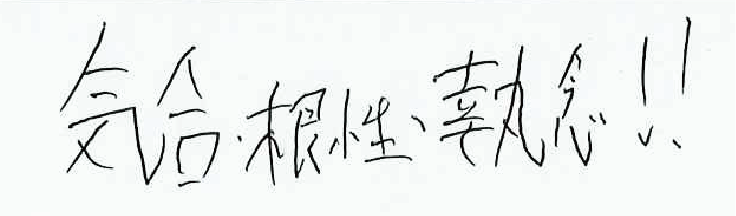 気合・根性、執念!!